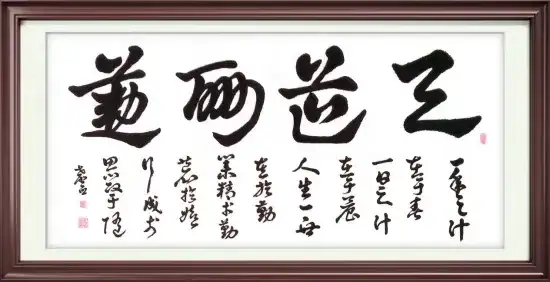 天道酬勤
一年之计
在于春
一日之计
在于晨
人生一世
在於勤
業精於勤
荒於嬉
行成於
思毁于随